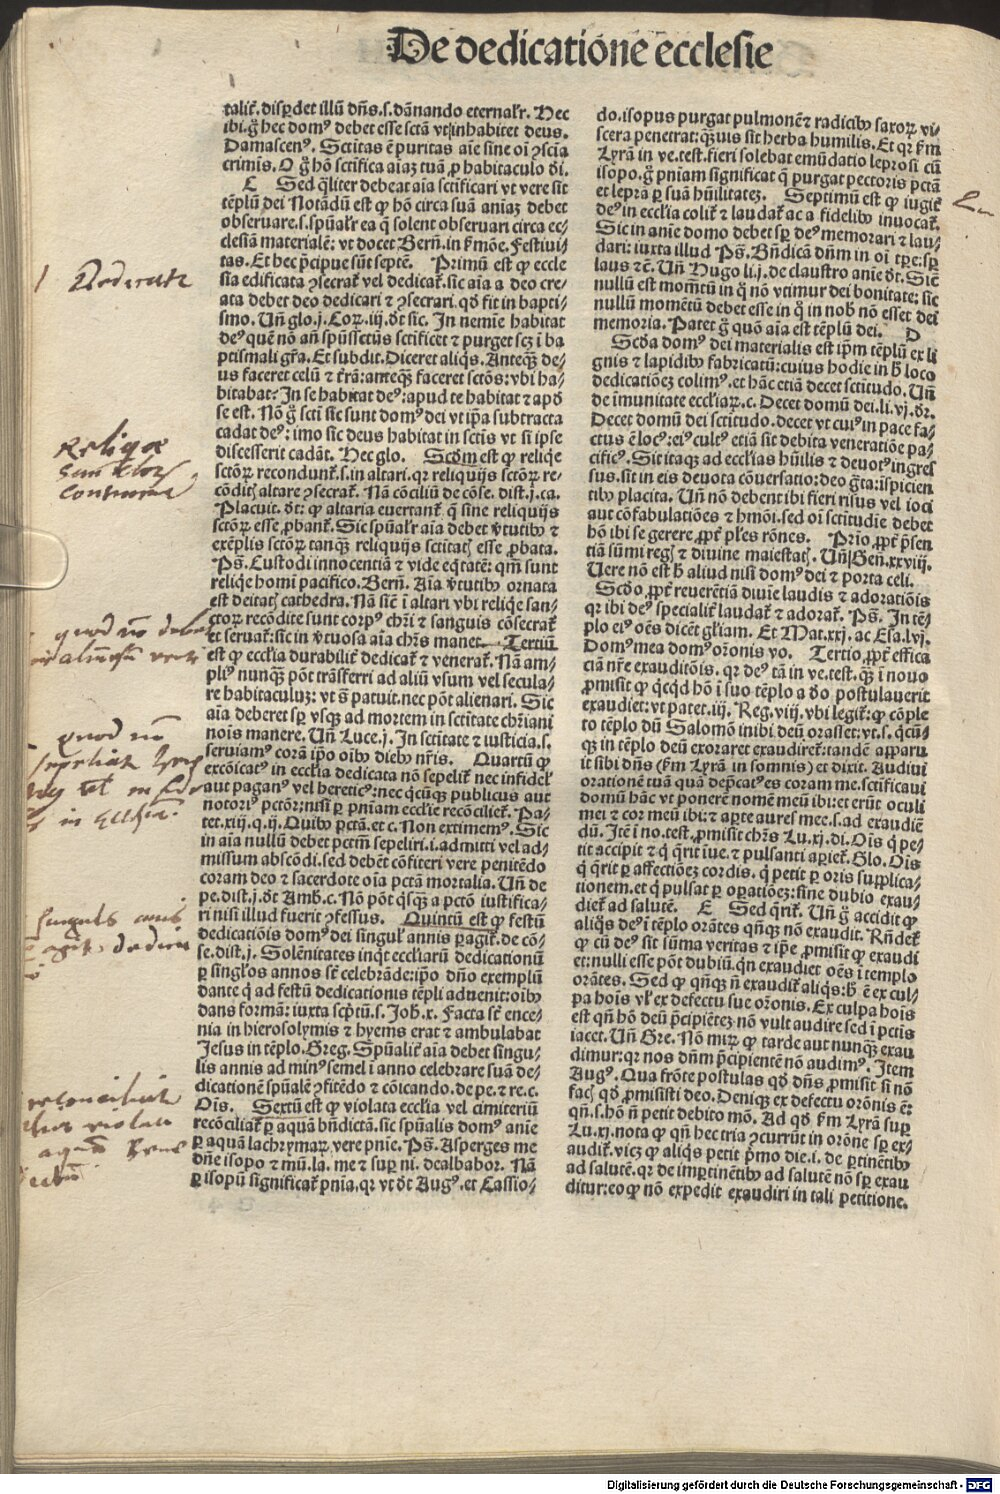 De dedicatione ecclesie
talit̉. disꝑdet illū dn̄s. s. dānando eternalr̉. Hec
ibi. g̊ hec domꝰ debet esse sctā vt inhabitet deus.
Damascenꝰ. Sctitas ē puritas aīe sine oī ꝯscīa
crimīs. O g̊ hō sctifica aīaꝫ tuā ꝓ habitaculo dī.
C Sed q̄liter debeat aīa sctificari vt vere sit
tēplū dei Notādū est ꝙ hō circa suā aniaꝫ debet
obseruare. s. spūalr̉ ea q̄ solent obseruari circa ec-
clesiā materialē: vt docet Bern̄. in ẜmōe. Festiui-
tas. Et hec p̄cipue sūt septē. Primū est ꝙ eccle
sia edificata ꝯsecrat̉ vel dedicat̉. sic aīa a deo cre-
ata debet deo dedicari et ꝯsecrari. qd̊ fit in bapti-
smo. Un̄ glo. j. Cor. iij. dt̄ sic. In nemīe habitat
deꝰ quē nō an̄ spūssctūs sctificēt ⁊ purget scꝫ ī ba
ptismali gr̄a. Et subdit. Diceret aliqs. Anteq̄ꝫ de-
us faceret celū ⁊ t̄rā: anteq̄ꝫ faceret sctōs: vbi ha-
bitabat? In se habitat deꝰ: apud te habitat ⁊ apd̊
se est. Nō g̊ scti sic sunt domꝰ dei vt ip̄a subtracta
cadat deꝰ: imo sic deus habitat in sctīs vt si ipse
discesserit cadāt. Hec glo. Scd̄m est ꝙ reliq̄e
sctoꝝ recondunt̉. s. in altari. qꝛ reliquijs sctoꝝ re-
cōditꝭ altare ꝯsecrat̉. Nā cōciliū de cōse. dist. j. ca.
Placuit. dt̄: ꝙ altaria euertant̉ q̄ sine reliquijs
sctoꝝ esse ꝓbant̉. Sic spūalr̉ aīa debet v̄tutibꝰ ⁊
exēplis sctoꝝ tanq̄ꝫ reliquijs sctitatꝭ esse ꝓbata.
Ps̄. Custodi innocentiā ⁊ vide eq̄tatē: qm̄ sunt
reliq̄e homi pacifico. Bern̄. Aīa v̄tutibꝰ ornata
est deitatꝭ cathedra. Nā sic̄ ī altari vbi reliq̄e san-
ctoꝝ recōdite sunt corpꝰ chr̄i ⁊ sanguis cōsecrat̉
et seruat̉: sic in v̄tuosa aīa chr̄s manet. Tertiū
est ꝙ ecclīa durabilit̉ dedicat̉ ⁊ venerat̉. Nā am-
pliꝰ nunq̄ꝫ pōt trāsferri ad aliū vsum vel secula-
re habitaculuꝫ: vt s̄ patuit. nec pōt alienari. Sic
aīa deberet sꝑ vsqꝫ ad mortem in sctitate chr̄iani
nois manere. Un̄ Luce. j. In sctitate ⁊ iusticia. s.
seruiamꝰ corā ip̄o oībꝰ diebꝰ nr̄is. Quartū ꝙ
excōicatꝰ in ecclīa dedicata nō sepelit̉. nec infidel̉
aut paganꝰ vel hereticꝰ: nec q̄cūqꝫ publicus aut
notoriꝰ pctōr: nisi ꝑ pn̄iam ecclīe recōciliet̉. Pa-
tet. xiij. q. ij. Quibꝰ pctā. et c. Non extimemꝰ. Sic
in aīa nullū debet pctm̄ sepeliri. i. admitti vel ad-
missum abscōdi. sed debēt cōfiteri vere penitēdo
coram deo ⁊ sacerdote oīa pctā mortalia. Un̄ de
pe. dist. j. dt̄ Amb. c. Nō pōt q̄sqꝫ a pctō iustifica-
ri nisi illud fuerit ꝯfessus. Quintū est ꝙ festū
dedicatiōis domꝰ dei singul̉ annis ꝑagit̉. de cō-
se. dist. j. Solēnitates inq̄t ecclīaꝝ dedicationū
ꝑ singl̉os annos st̄ celebrāde: ip̄o dn̄o exemplū
dante q̄ ad festū dedicationis tēpli aduenit: oībꝰ
dans formā: iuxta scptū. s. Joh. x. Facta st̄ ence-
nia in hierosolymis ⁊ hyems erat ⁊ ambulabat
Jesus in tēplo. Greg. Spūalit̉ aīa debet singu-
lis annis ad minꝰ semel ī anno celebrare suā de-
dicationē spūalē ꝯfitēdo ⁊ cōicando. de pe. ⁊ re. c.
Oīs. Sextū est ꝙ violata ecclīa vel cimiteriū
recōciliat̉ ꝑ aquā bn̄dictā. sic spūalis domꝰ anīe
ꝑ aquā lachrymaꝝ vere pnīe. Ps̄. Asperges me
dn̄e isopo ⁊ mū. la. me ⁊ suꝑ ni. dealbabor. Nā
ꝑ isopū significat̉ pnīa. qꝛ vt dt̄ Augꝰ. et Cassio-
do. isopus purgat pulmonē ⁊ radicibꝰ saxoꝝ vi-
scera penetrat: q̄ꝫuis sit herba humilis. Et qꝛ ẜm
Lyrā in ve. test. fieri solebat emūdatio leprosi cū
isopo. g̊ pn̄iam significat q̄ purgat pectoris pctā
et lepra ꝑ suā hūilitateꝫ. Septimū est ꝙ iugit̉
deꝰ in ecclīa colit̉ ⁊ laudat̉ ac a fidelibꝰ inuocat̉.
Sic in anīe domo debet sꝑ deꝰ memorari ⁊ lau-
dari: iuxta illud Ps̄. Bn̄dicā dn̄m in oī tꝑe: sꝑ
laus ⁊ c̄. Un̄ Hugo li. j. de claustro anīe dt̄. Sic̄
nullū est momētū in q̊ nō vtimur dei bonitate: sic
nullū momētū debet esse in q̊ in nob̄ nō esset dei
memoria. Patet g̊ quō aīa est tēplū dei. D
Scd̄a domꝰ dei materialis est ip̄m tēplū ex li
gnis ⁊ lapidibꝰ fabricatū: cuius hodie in h̄ loco
dedicationeꝫ colimꝰ. et hāc etiā decet sctitudo. Un̄
de imunitate ecclīaꝝ. c. Decet domū dei. li. vj. dr̄.
Decet domū dei sctitudo. decet vt cuiꝰ in pace fa-
ctus ē locꝰ: eiꝰ cultꝰ etiā sit debita veneratiōe pa-
cificꝰ. Sit itaqꝫ ad ecclīas hūilis ⁊ deuotꝰ ingres
sus. sit in eis deuota cōuersatio: deo gr̄a: īspicien
tibꝰ placita. Un̄ nō debent ibi fieri risus vel ioci
aut cōfabulatiōes ⁊ hmōi. sed oī sctitudīe debet
hō ibi se gerere ꝓpt̉ pl̄es rōnes. Prīo ꝓpt̉ p̄sen
tiā sūmi regꝭ ⁊ divine maiestatꝭ. Un̄ Gen̄. xxviij.
Uere nō est h̄ aliud nisi domꝰ dei ⁊ porta celi.
Scd̊o ꝓpt̉ reuerētiā diuīe laudis ⁊ adoratiōis
qꝛ ibi deꝰ specialit̉ laudat̉ ⁊ adorat̉. Ps̄. In tē-
plo eiꝰ oēs dicēt gl̄iam. Et Mat. xxj. ac Esa. lvj.
Domꝰ mea domꝰ or̄onis vo. Tertio ꝓpt̉ effica
ciā nr̄e exauditōis. qꝛ deꝰ tā in ve. test. q̄ꝫ ī nouo
ꝓmisit ꝙ q̄cq̄d hō ī suo tēplo a d̊o postulauerit
exaudiet: vt patet. iij. Reg. viij. vbi legit̉: ꝙ cōple
to tēplo dū Salomō inibi deū orasset: vt. s. q̄cū-
qꝫ in tēplo deū exoraret exaudiret̉: tandē apparu
it sibi dn̄s (ẜm Lyrā in somnis) et dixit. Audiui
orationē tuā quā dep̄catꝰ es coram me. sctificaui
domū hāc vt ponerē nomē meū ibi: et erūt oculi
mei ⁊ cor meū ibi: ⁊ aꝑte aures mee. s. ad exaudiē
dū. Itē ī no. test. ꝓmisit chr̄s Lu. xj. di. Oīs q̄ pe-
tit accipit ⁊ q̄ q̄rit īue. ⁊ pulsanti aꝑiet̉. Glo. Oīs
q̄ q̄rit ꝑ affectiōeꝫ cordis. q̄ petit ꝑ oris supplica-
tionem. et q̄ pulsat ꝑ oꝑatiōeꝫ: sine dubio exau-
diet̉ ad salutē. E Sed q̄rit̉. Un̄ g̊ accidit ꝙ
aliq̄s deꝰ ī tēplo orātes qn̄qꝫ nō exaudit. Rn̄det̉
ꝙ cū deꝰ sit sūma veritas ⁊ ip̄e ꝓmisit ꝙ exaudi
et: nulli esse pōt dubiū. qn̄ exaudiet oēs ī templo
orātes. Sed ꝙ qn̄qꝫ n̄ exaudit̉ aliq̄s: h̄ ē ex cul-
pa hoīs vl̉ ex defectu sue or̄onis. Ex culpa hoīs
est qn̄ hō deū p̄cipiēteꝫ nō vult audire sed ī pctīs
iacet. Un̄ Gre. Nō miꝝ ꝙ tarde aut nunqꝫ exau
dimur: qꝛ nos dn̄m p̄cipientē nō audimꝰ. Item
Augꝰ. Qua frōte postulas qd̊ dn̄s ꝓmisit si nō
facꝭ qd̊ ꝓmisisti deo. Deniqꝫ ex defectu orōnis ē:
qn̄. s. hō n̄ petit debito mō. Ad qd̊ ẜm Lyrā suꝑ
Lu. xj. nota ꝙ qn̄ hec tria ꝯcurrūt in orōne sꝑ ex-
audit̉. vicꝫ ꝙ aliq̄s petit p̄mo die. i. de ꝑtinētibꝰ
ad salutē. qꝛ de imꝑtinētibꝰ ad salutē nō sꝑ exau
ditur: eo ꝙ nō expedit exaudiri in tali petitione.
Digitalisierung gefördert durch die Deutsche Forschungsgemeinschaft - DFG